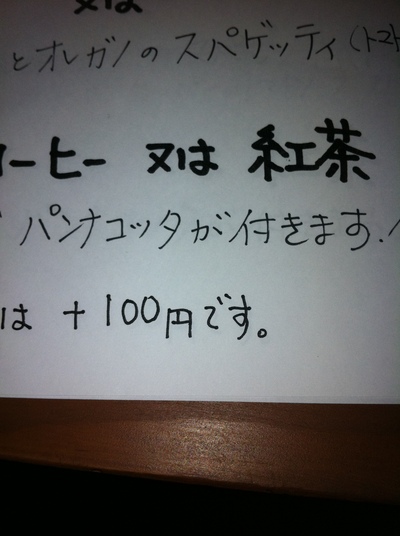 又は
とオレガノのスパゲッティ(トマト
ーヒー 又は 紅茶
パンナコッタが付きます!
は +100円です。